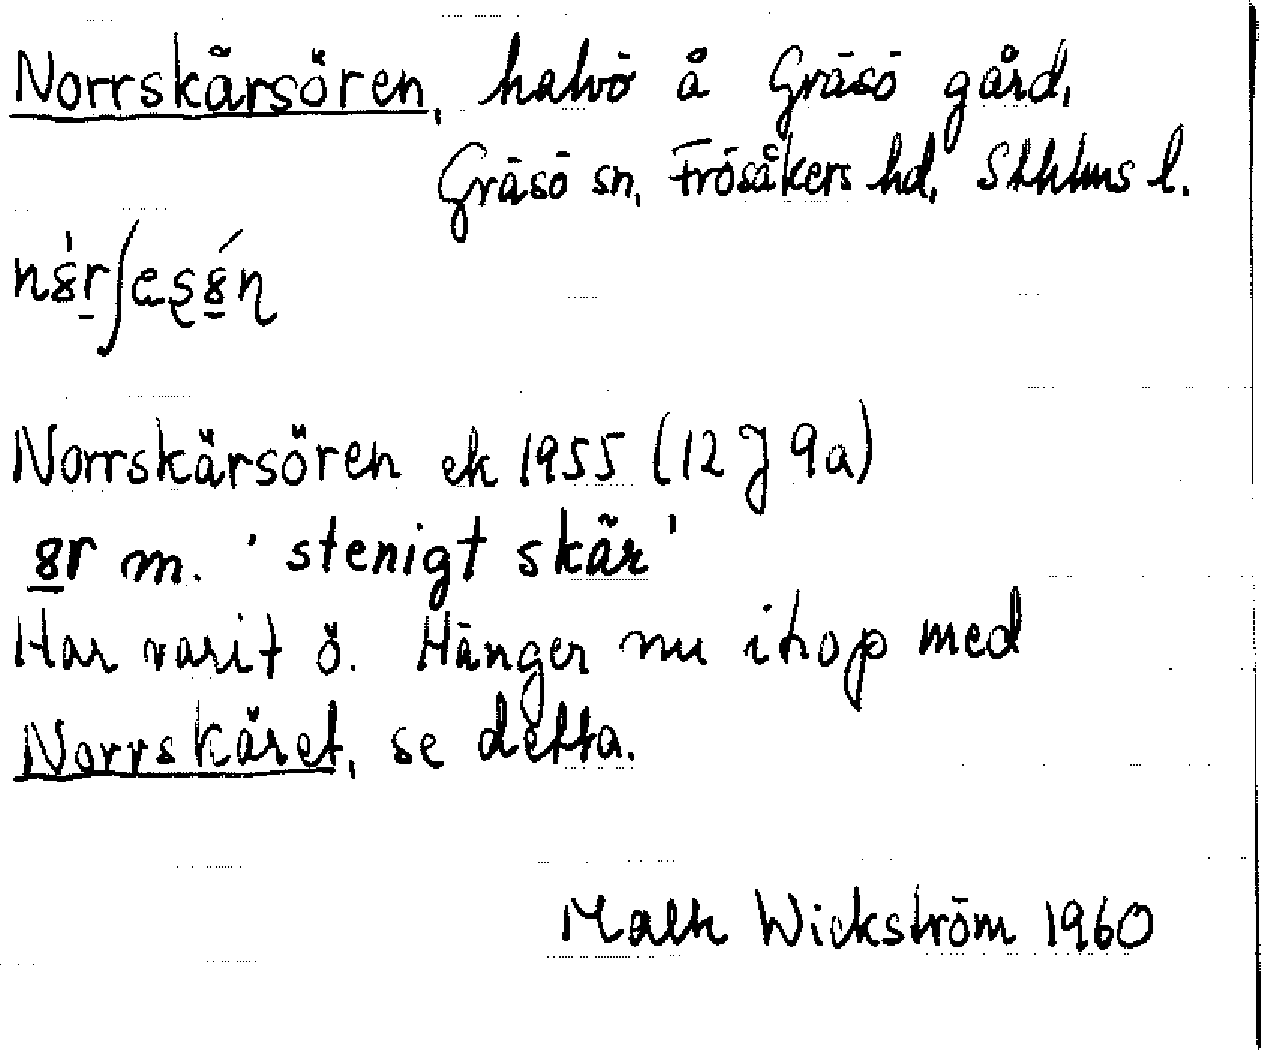 Norrskärsören, halvö å Gräsö gård,
Gräsö sn, Frösåkers hd, Sthlms l.
Norrskärsören ek 1955 (12 J 9a)
m. 'stenigt skär'
Har varit ö. Hänger nu ihop med
Norrskäret, se detta.
Wickström 1960